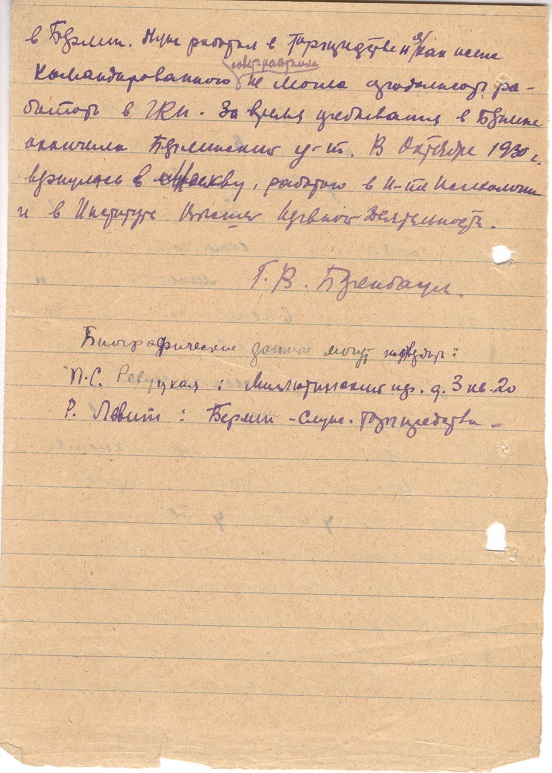 в Берлин. Муж работал в Торгпредстве и я, как жена
совет. работника
командированного не могла продолжать ра-
ботать в ГКИ. За время пребывания в Берлине
окончила Берлинский у-т. В Октябре 1930 г.
вернулась в Москву, работаю в И-те Психологии
и в Институте Высшей Нервной Деятельности.
Г. В. Биренбаум.
Биографические данные могут подтвердить:
П.С. Ревуцкая : Милютинский пр. д. 3 кв. 20
Р. Левит : Берлин - Служ. Торгпредства -